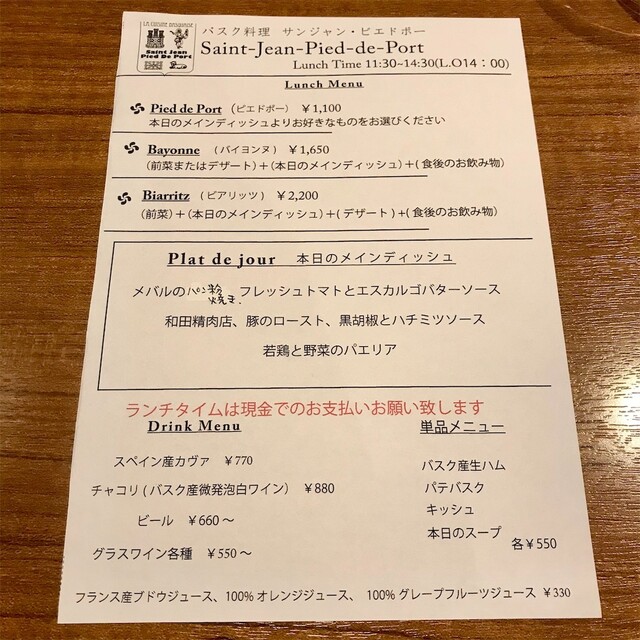 LA CUISINE BASQUAISE
Saint Jean
Pied De Port
バスク料理 サンジャン・ピエドポー
Saint-Jean-Pied-de-Port
Lunch Time 11:30~14:30(L.O14：00)
Lunch Menu
Pied de Port (ピエドポー) ￥1,100
本日のメインディッシュよりお好きなものをお選びください
Bayonne (バイヨンヌ) ￥1,650
(前菜またはデザート)＋(本日のメインディッシュ)＋(食後のお飲み物)
Biarritz (ビアリッツ) ￥2,200
(前菜)＋(本日のメインディッシュ)＋(デザート)＋(食後のお飲み物)
Plat de jour 本日のメインディッシュ
メバルのパン粉焼き、フレッシュトマトとエスカルゴバターソース
和田精肉店、豚のロースト、黒胡椒とハチミツソース
若鶏と野菜のパエリア
ランチタイムは現金でのお支払いお願い致します
Drink Menu 単品メニュー
スペイン産カヴァ ￥770
バスク産生ハム
チャコリ(バスク産微発泡白ワイン) ￥880
パテバスク
キッシュ
ビール ￥660～
本日のスープ
各￥550
グラスワイン各種 ￥550～
フランス産ブドウジュース、100%オレンジジュース、 100%グレープフルーツジュース ￥330